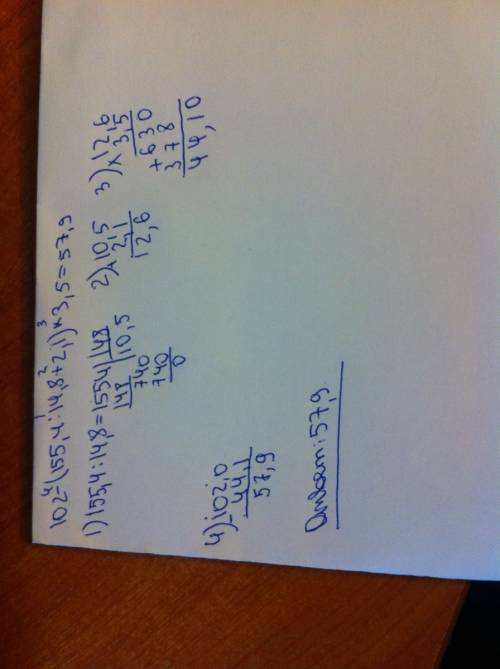 102-(155,4:14,8+2,1)×3,5=57,9
4 1 2 3
1)155,4:14,8=1554|148
148 |10,5
740
740
0
2)10,5
2,1
12,6
3)×12,6
3,5
+630
378
44,10
4)-102,0
44,1
57,9
Ответ:57,9